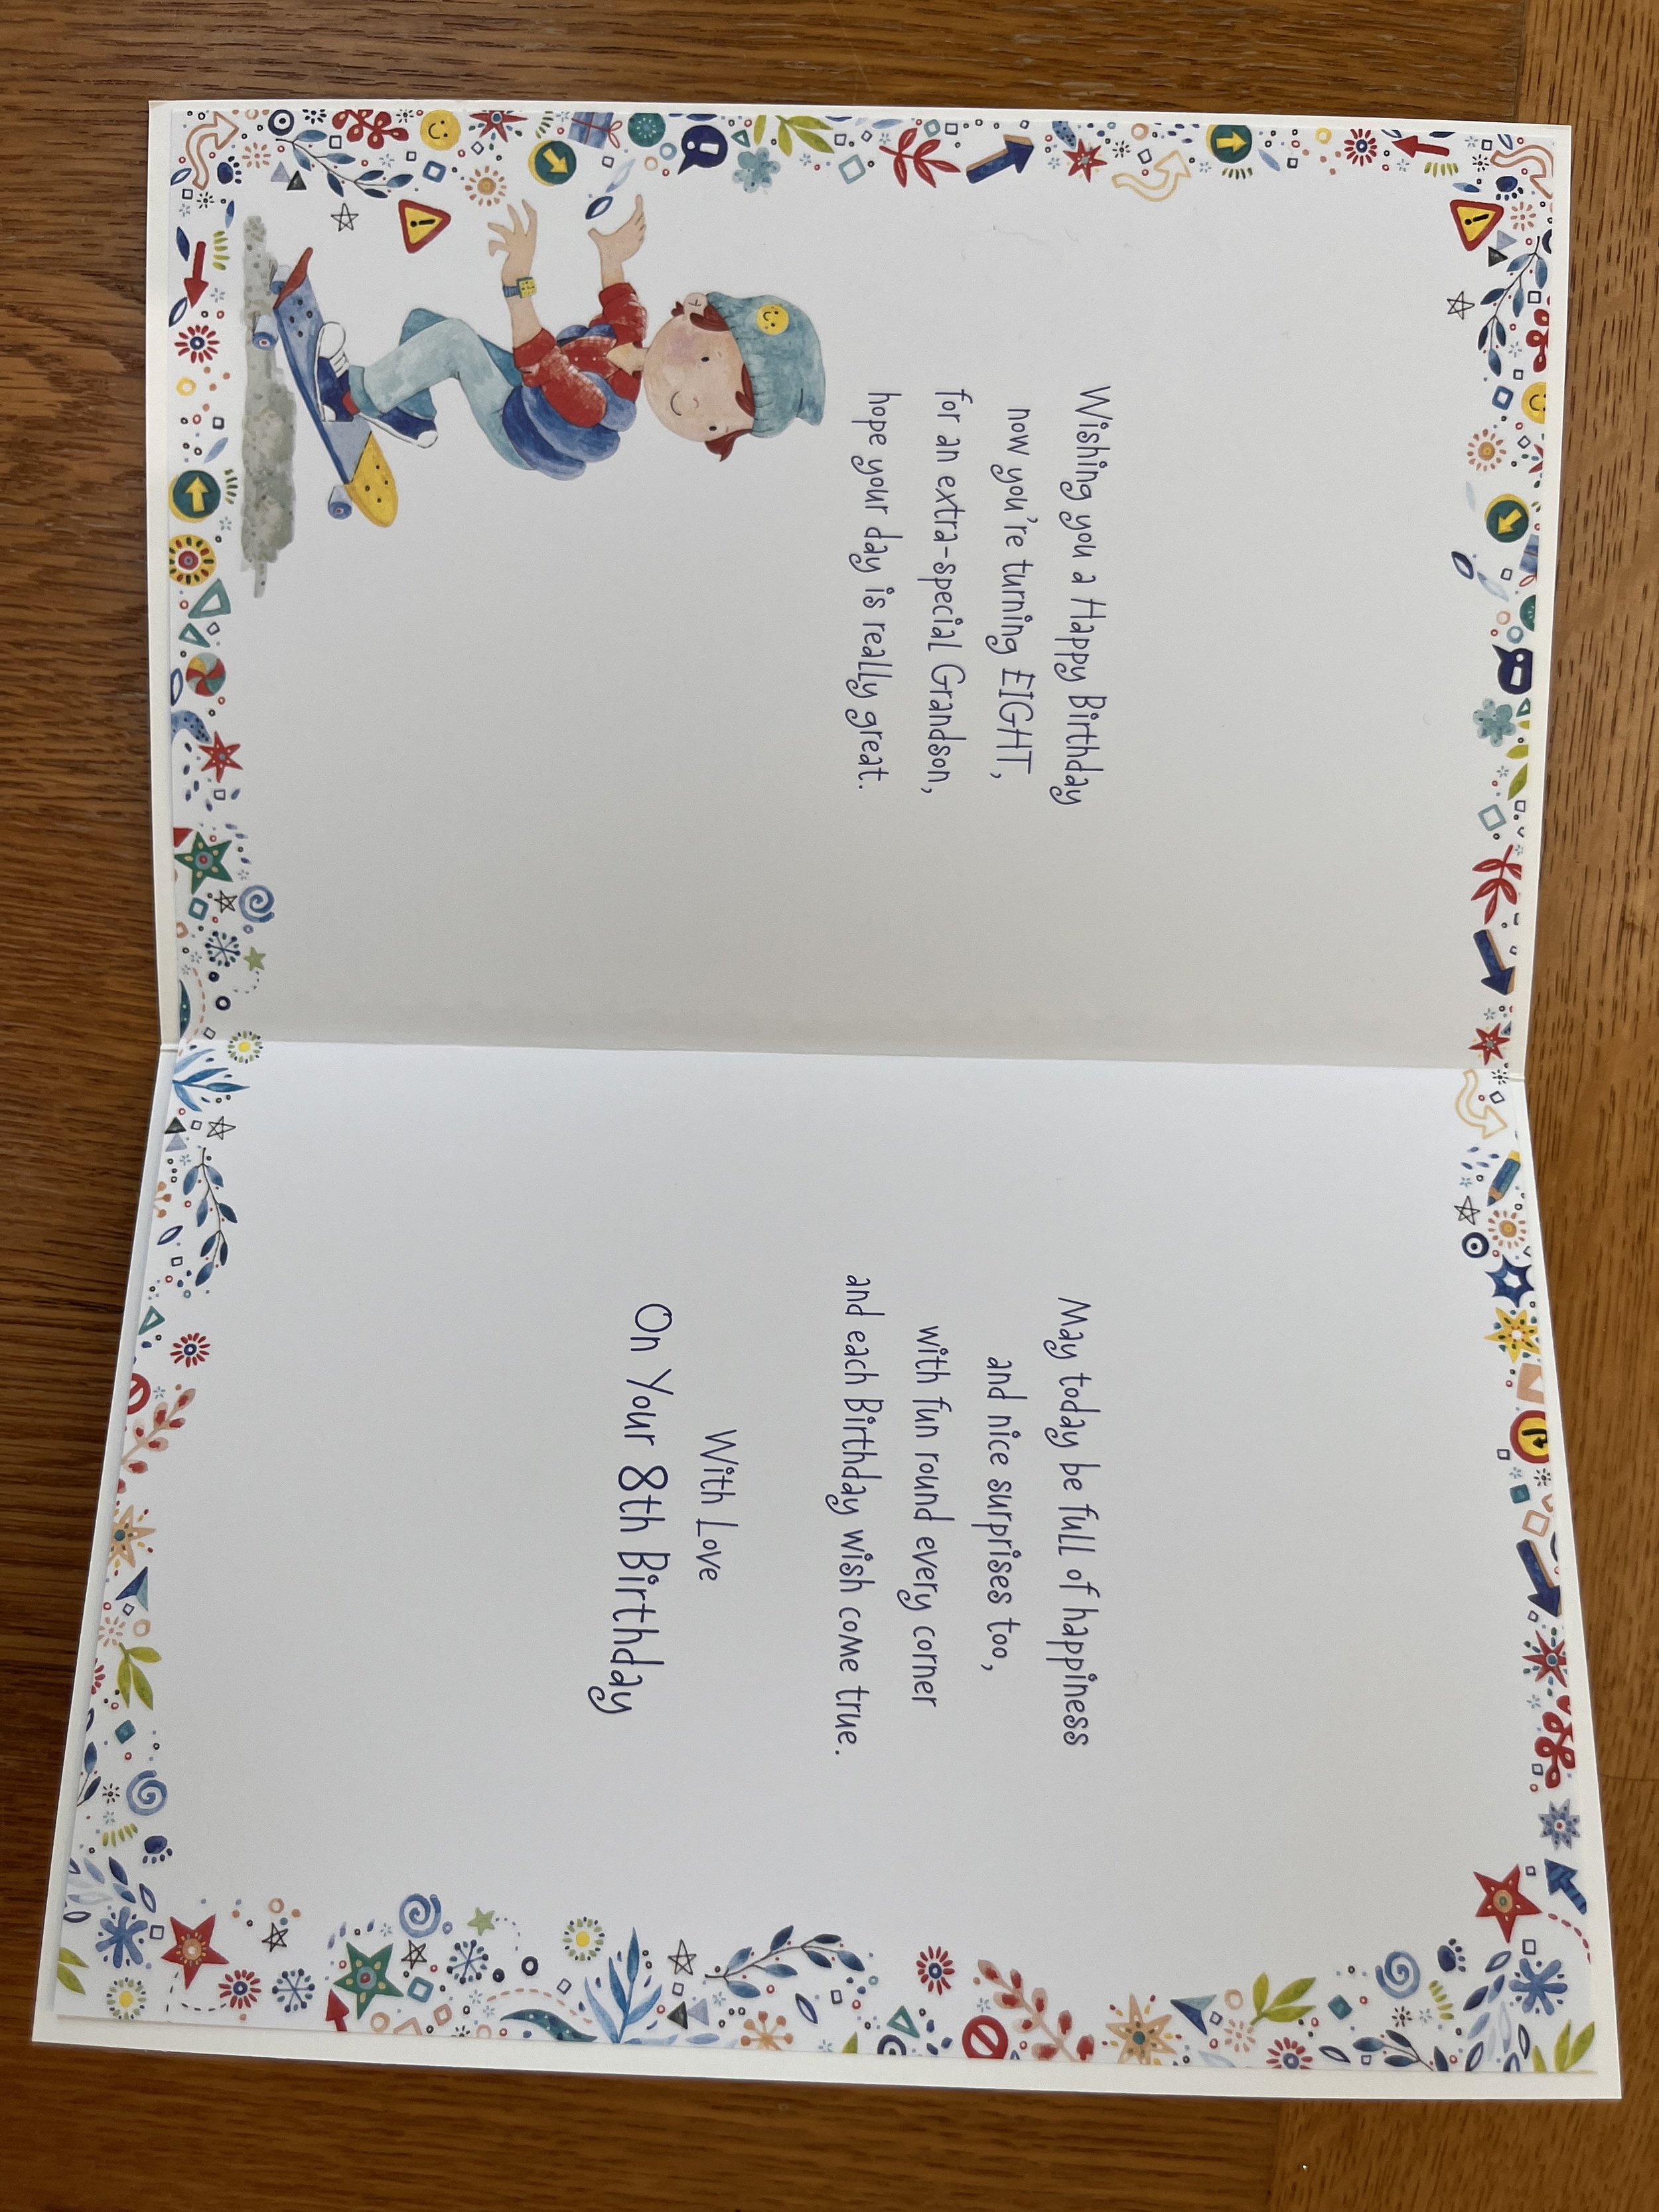 Wishing you a Happy Birthday
now you're turning EIGHT,
for an extra-special Grandson,
hope your day is really great.
May today be full of happiness
and nice surprises too,
with fun round every corner
and each Birthday wish come true.
With Love
On Your 8th Birthday